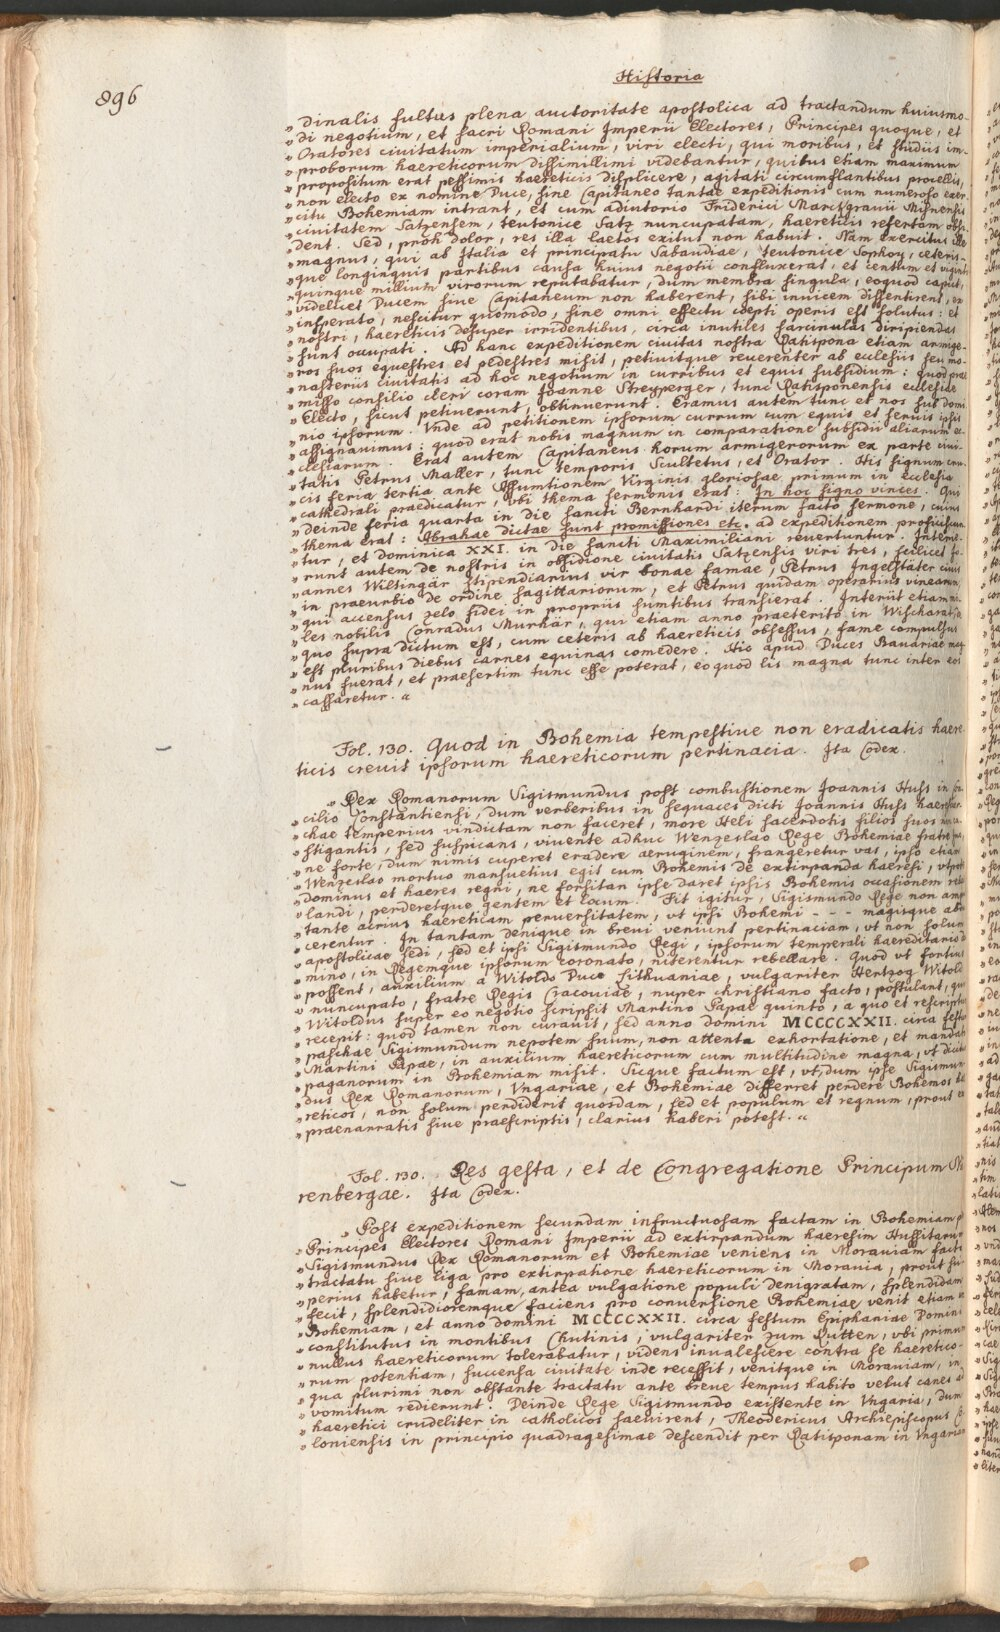 Historia
896
„dinalis fultus plena auctoritate apostolica ad tractandum huiusmo-
„di negotium, et sacri Romani Imperii Electores, Principes quoque, et
„Oratores civitatum imperialium, viri electi, qui moribus, et studiis im-
„proborum haereticorum dissimillimi videbantur, quibus etiam maximum
„propositum erat pessimis haereticis displicere, agitati circumstantibus procellis,
„non electo ex nomine Duce, sine Capitaneo tantae expeditionis cum numeroso exer-
„citu Bohemiam intrant, et cum adiutorio Friderici Marchgravii Misnensis
„civitatem Satzensem, teutonice Satz nuncupatam, haereticis refertam obsi-
„dent. Sed, proh dolor, res illa laetos exitus non habuit. Nam exercitus ille
„magnus, qui ab Italia et principatu Sabaudiae, teutonice Sophoy, ceteris-
„que longinquis partibus causa huius negotii confluxerat, et centum et viginti
„quinque millium virorum reputabatur, dum membra singula, eoquod caput,
„videlicet Ducem sive Capitaneum non haberent, sibi invicem dissentirent, ex
„insperato, nescitur quomodo, sine omni effectu coepti operis est solutus: et
„nostri, haereticis desuper irridentibus, circa inutiles sarcinulas diripiendas
„sunt occupati. Ad hanc expeditionem civitas nostra Ratispona etiam armige-
„ros suos equestres et pedestres misit, petivitque reverenter ab ecclesiis seu mo-
„nasteriis civitatis ad hoc negotium in curribus et equis subsidium: quod prae
„misso consilio cleri coram Joanne Streyperger, tunc Ratisponensis ecclesiae
„Electo, sicut petiverunt, obtinuerunt. Eramus autem tunc et nos sub domi-
„nio ipsorum. Vnde ad petitionem ipsorum currum cum equis et servis ipsis
„assignavimus: quod erat nobis magnum in comparatione subsidii aliarum ec-
„clesiarum. Erat autem Capitaneus horum armigerorum ex parte civi-
„tatis Petrus Maller, tunc temporis Scultetus, et Orator. His signum cru-
„cis feria tertia ante Assumtionem Virginis gloriosae primum in ecclesia
„cathedrali praedicatur, vbi thema sermonis erat: In hoc signo vinces. Qui
„deinde feria quarta in die sancti Bernhardi iterum facto sermone, cuius
„thema erat: Abrahae dictae sunt promissiones etc. ad expeditionem proficiscun
„tur, et dominica XXI. in die sancti Maximiliani revertuntur. Interie-
„runt autem de nostris in obsidione civitatis Satzensis viri tres, scilicet Jo-
„annes Wiltingär stipendiarius vir bonae famae, Petrus Ingelstäter civis
„in praeurbio de ordine sagittariorum, et Petrus quidam operarius vinearum,
„qui accensus zelo fidei in propriis sumtibus transierat. Interiit etiam mi-
„les nobilis Conradus Murhär, qui etiam anno praeterito in Wischarat,
„quo supra dictum est, cum ceteris ab haereticis obsessus, fame compulsus
„est pluribus diebus carnes equinas comedere. Hic apud Duces Bavariae mag
„nus fuerat, et praesertim tunc esse poterat, eoquod lis magna tunc inter eos
„cassaretur. “
Fol. 130. Quod in Bohemia tempestive non eradicatis haere
ticis crevit ipsorum haereticorum pertinacia. Ita Codex.
„Rex Romanorum Sigismundus post combustionem Joannis Huss in Con
„cilio Constantiensi, dum verberibus in sequaces dicti Joannis Huss haeresiar-
„chae temperius vindictam non faceret, more Heli sacerdotis filios suos non ca-
„stigantis, sed suspicans, vivente adhuc Wenzeslao Rege Bohemiae fratre suo,
„ne forte, dum nimis cuperet eradere aeruginem, frangeretur vas, ipso etiam
„Wenzeslao mortuo mansuetius egit cum Bohemis de extirpanda haeresi, vtpote
„dominus et haeres regni, ne forsitan ipse daret ipsis Bohemis occasionem rebel
„landi, perderetque gentem et locum. Fit igitur, Sigismundo Rege non ampu
„tante acrius haereticam perversitatem, vt ipsi Bohemi - - - magisque abdu
„cerentur. In tantam denique in brevi veniunt pertinaciam, vt non solum
„apostolicae sedi, sed et ipsi Sigismundo Regi, ipsorum temperali haereditario do
„mino, in Regemque ipsorum coronato, niterentur rebellare. Quod vt fortius
„possent, auxilium a Witoldo Duce Lithuaniae, vulgariter Hertzog Witold
„nuncupato, fratre Regis Cracoviae, nuper christiano facto, postulant, qui
„Witoldus super eo negotio scripsit Martino Papae quinto, a quo et rescriptum
„recepit: quod tamen non curavit, sed anno domini MCCCCXXII. circa festum
„paschae Sigismundum nepotem suum, non attenta exhortatione, et mandato
„Martini Papae, in auxilium haereticorum cum multitudine magna, vt dicitur
„paganorum in Bohemiam misit. Sicque factum est, vt, dum ipse Sigismun
„dus Rex Romanorum, Vngariae, et Bohemiae differret perdere Bohemos hae
„reticos, non solum perdiderit quosdam, sed et populum et regnum, prout ex
„praenarratis sive praescriptis, clarius haberi potest. “
Fol. 130. Res gesta, et de Congregatione Principum Nü
renbergae. Ita Codex.
„Post expeditionem secundam infructuosam factam in Bohemiam p
„Principes Electores Romani Imperii ad extirpandum haeresim Hussitarum
„Sigismundus Rex Romanorum et Bohemiae veniens in Moraviam facto
„tractatu sive liga pro extirpatione haereticorum in Moravia, prout su
„perius habetur, famam, antea vulgatione populi denigratam, splendidam
„fecit, splendidioremque faciens pro conversione Bohemiae venit etiam in
„Bohemiam, et anno domini MCCCCXXII. circa festum Epiphaniae Domini
„constitutus in montibus Chutinis, vulgariter zum Qutten, vbi primum
„nullus haereticorum tolerabatur, videns invalescere contra se haeretico-
„rum potentiam, succensa civitate inde recessit, venitque in Moraviam, in
„qua plurimi non obstante tractatu ante breve tempus habito velut canes ad
„vomitum redierunt. Deinde Rege Sigismundo existente in Vngaria, dum
„haeretici crudeliter in catholicos saevirent, Theodericus Archiepiscopus Co
„loniensis in principio quadragesimae descendit per Ratisponam in Vngariam